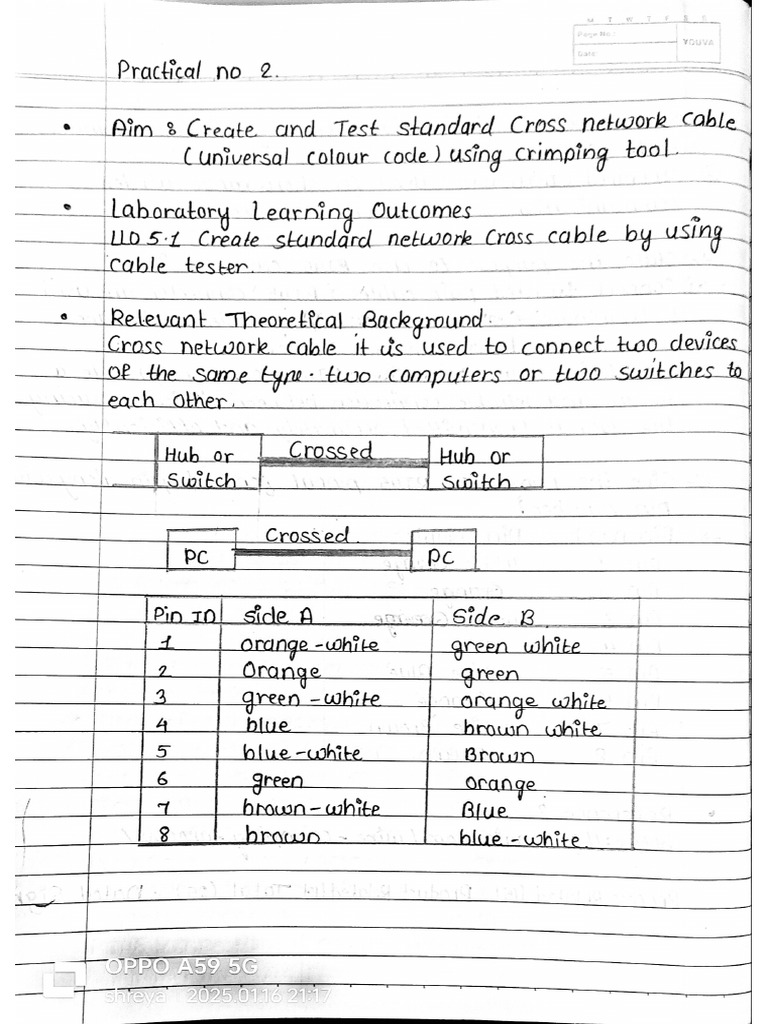 M T W T F S S
Page No.:
Date:
YOUVA
Practical no 2.
• Aim : Create and Test standard Cross network cable
(universal colour code) using crimping tool.
• Laboratory Learning Outcomes
LLO 5.1 Create standard network Cross cable by using
cable tester.
• Relevant Theoretical Background.
Cross network cable it is used to connect two devices
of the same type. two computers or two switches to
each other.
Hub or Crossed Hub or
Switch. Switch.
Crossed.
PC PC
Pin ID side A Side B
1 orange-white green white
2 Orange green
3 green-white orange white
4 blue brown white
5 blue-white Brown
6 green orange
7 brown-white Blue
8 brown blue-white
OPPO A59 5G
shreya 2025.01.16 21:17